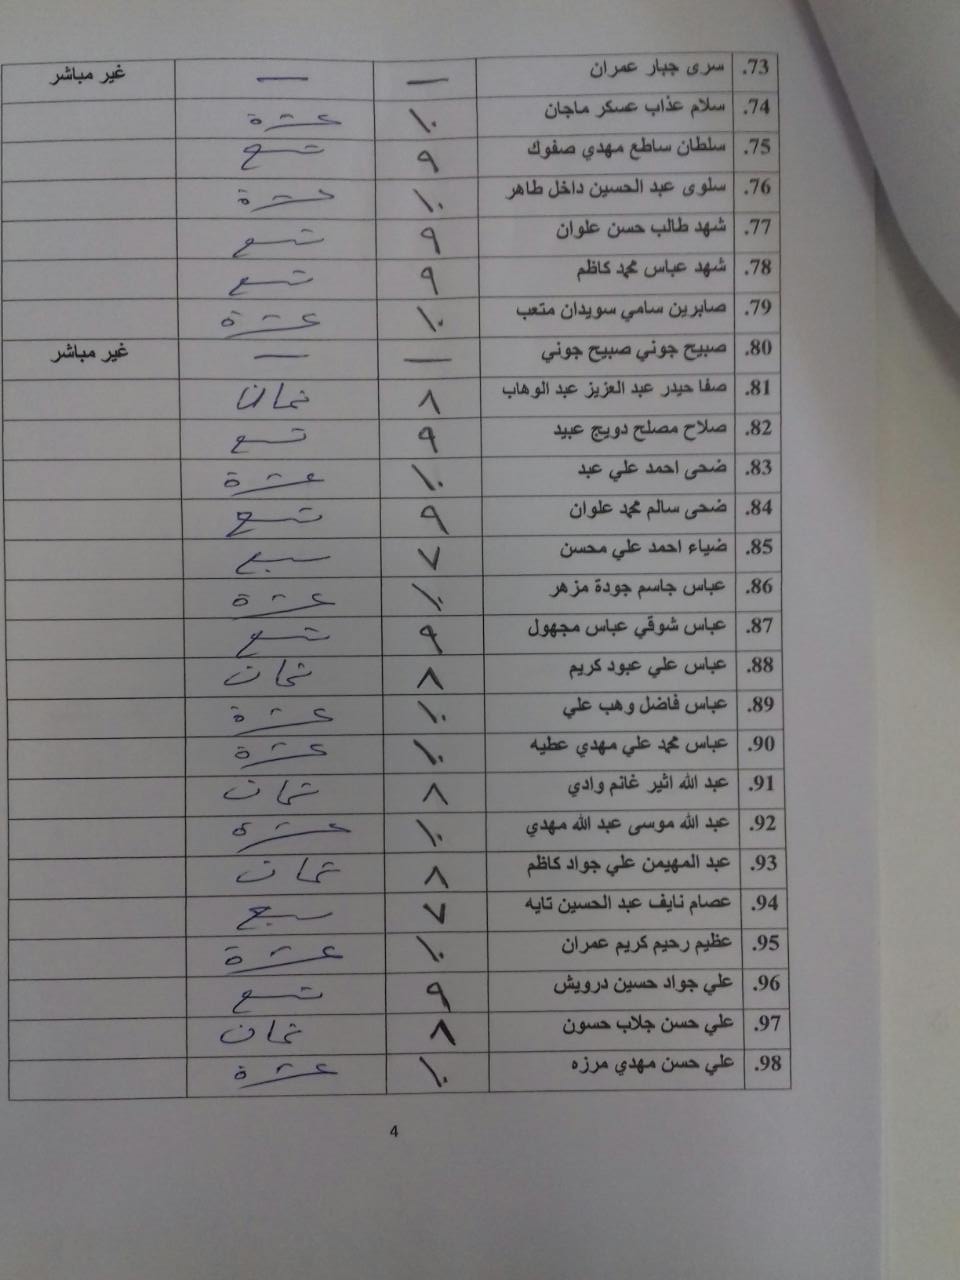 73. سرى جبار عمران — — غير مباشر
74. سلام عذاب عسكر ماجان ١٠ عشرة
75. سلطان ساطع مهدي صفوك ٩ تسع
76. سلوى عبد الحسين داخل طاهر ١٠ عشرة
77. شهد طالب حسن علوان ٩ تسع
78. شهد عباس محمد كاظم ٩ تسع
79. صابرين سامي سويدان متعب ١٠ عشرة
80. صبيح جوني صبيح جوني — — غير مباشر
81. صفا حيدر عبد العزيز عبد الوهاب ٨ ثمان
82. صلاح مصلح دويج عبيد ٩ تسع
83. ضحى احمد علي عبد ١٠ عشرة
84. ضحى سالم محمد علوان ٩ تسع
85. ضياء احمد علي محسن ٧ سبع
86. عباس جاسم جودة مزهر ١٠ عشرة
87. عباس شوقي عباس مجهول ٩ تسع
88. عباس علي عبود كريم ٨ ثمان
89. عباس فاضل وهب علي ١٠ عشرة
90. عباس محمد علي مهدي عطيه ١٠ عشرة
91. عبد الله اثير غانم وادي ٨ ثمان
92. عبد الله موسى عبد الله مهدي ١٠ عشرة
93. عبد المهيمن علي جواد كاظم ٨ ثمان
94. عصام نايف عبد الحسين تايه ٧ سبع
95. عظيم رحيم كريم عمران ١٠ عشرة
96. علي جواد حسين درويش ٩ تسع
97. علي حسن جلاب حسون ٨ ثمان
98. علي حسن مهدي مرزه ١٠ عشرة
4